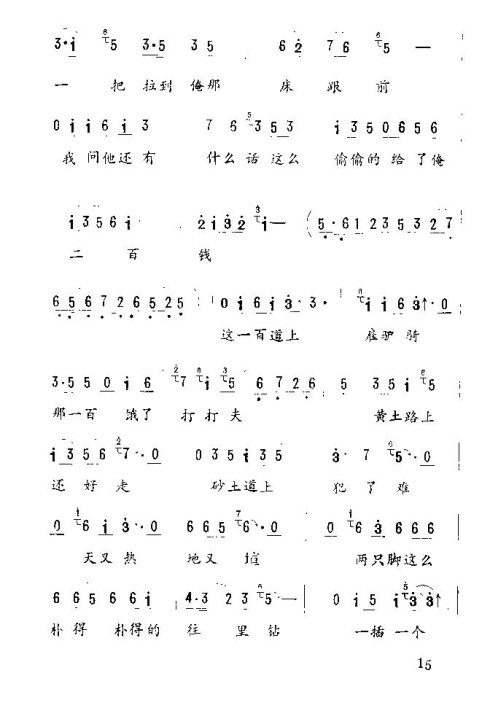 3·i 5 3·5 3 5 6 2 7 6 5 —
一 把 拉到 俺那 床 跟 前
0 i i 6 i 3 7 6 3 5 3 i 3 5 0 6 5 6
我 问 他 还 有 什 么 话 这 么 偷 偷 的 给 了 俺
i 3 5 6 i 2 i 3 2 i — ( 5 · 6 1 2 3 5 3 2 7
二 百 钱
6 5 6 7 2 6 5 2 5 0 i 6 i 3 · 3 · i i 6 3 · 0
这 一 百 道 上 雇 驴 骑
3 · 5 5 0 i 6 7 i 5 6 5 7 2 6 5 3 5 i 5
那 一 百 饿 了 打 打 夫 黄 土 路 上
i 3 5 6 7 · 0 0 3 5 i 3 5 3 · 7 5 · 0
还 好 走 砂 土 道 上 犯 了 难
0 6 i 3 · 0 6 6 5 6 · 0 0 3 6 3 6 6 6
天 又 热 地 又 喧 两 只 脚 这 么
6 6 5 6 6 i 4 · 3 2 3 5 — 0 i 5 i 3 3
朴 得 朴 得 的 往 里 钻 一 插 一 个
15